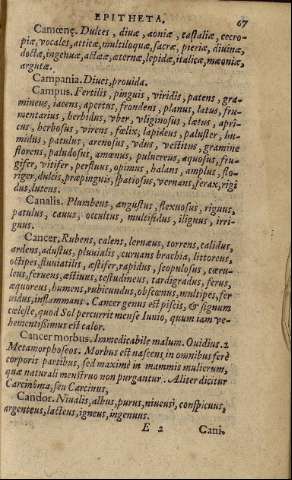 EPITHETA. 67
Camœnę. Dulces, diuæ, aoniæ, castaliæ, cecro-
piæ, vocales, atticæ, multiloquæ, sacræ, pieriæ, diuinæ,
doctæ, ingenuæ, actææ, æternæ, lepidæ, italicæ, mæoniæ,
argutæ.
Campania. Diues, prouida.
Campus. Fertilis, pinguis, viridis, patens, gra-
mineus, iacens, apertus, frondens, planus, latus, fru-
mentarius, herbidus, vber, vliginosus, lætus, apri-
cus, herbosus, virens, fœlix, lapideus, paluster, hu-
midus, patulus, arenosus, vdus, vestitus, gramine
florens, paludosus, amœnus, puluereus, aquosus, fru-
gifer, vitifer, perfluus, opimus, halans, amplus, flo-
riger, dulcis, præpinguis, spatiosus, vernans, ferax, rigi
dus, lutens.
Canalis. Plumbeus, angustus, flexuosus, riguus,
patulus, cauus, occultus, mulcifidus, iliguus, irri-
guus.
Cancer. Rubens, calens, lernæus, torrens, calidus,
ardens, adustus, pluuialis, curuans brachia, littoreus,
octipes, fluuiatilis, æstifer, rapidus, scopulosus, cæru-
leus, ferueus, æstiuus, testudineus, tardigradus, ferus,
æquoreus, humens, rubicundus, obscœnus, multipes, fer
uidus, inflammans. Cancer genus est piscis, & signum
cæleste, quod Sol percurrit mense Iunio, quum iam ve-
hementissimus est calor.
Cancer morbus. Immedicabile malum. Ouidius. 2
Metamorphoseos. Morbus est nascens in omnibus ferè
corporis partibus, sed maximè in mammis mulierum,
quæ naturali menstruo non purgantur. Aliter dicitur
Carcinôma, seu Carcinus.
Candor. Niualis, albus, purus, niueus, conspicuus,
argenteus, lacteus, igneus, ingenuus.
E 2 Cani.